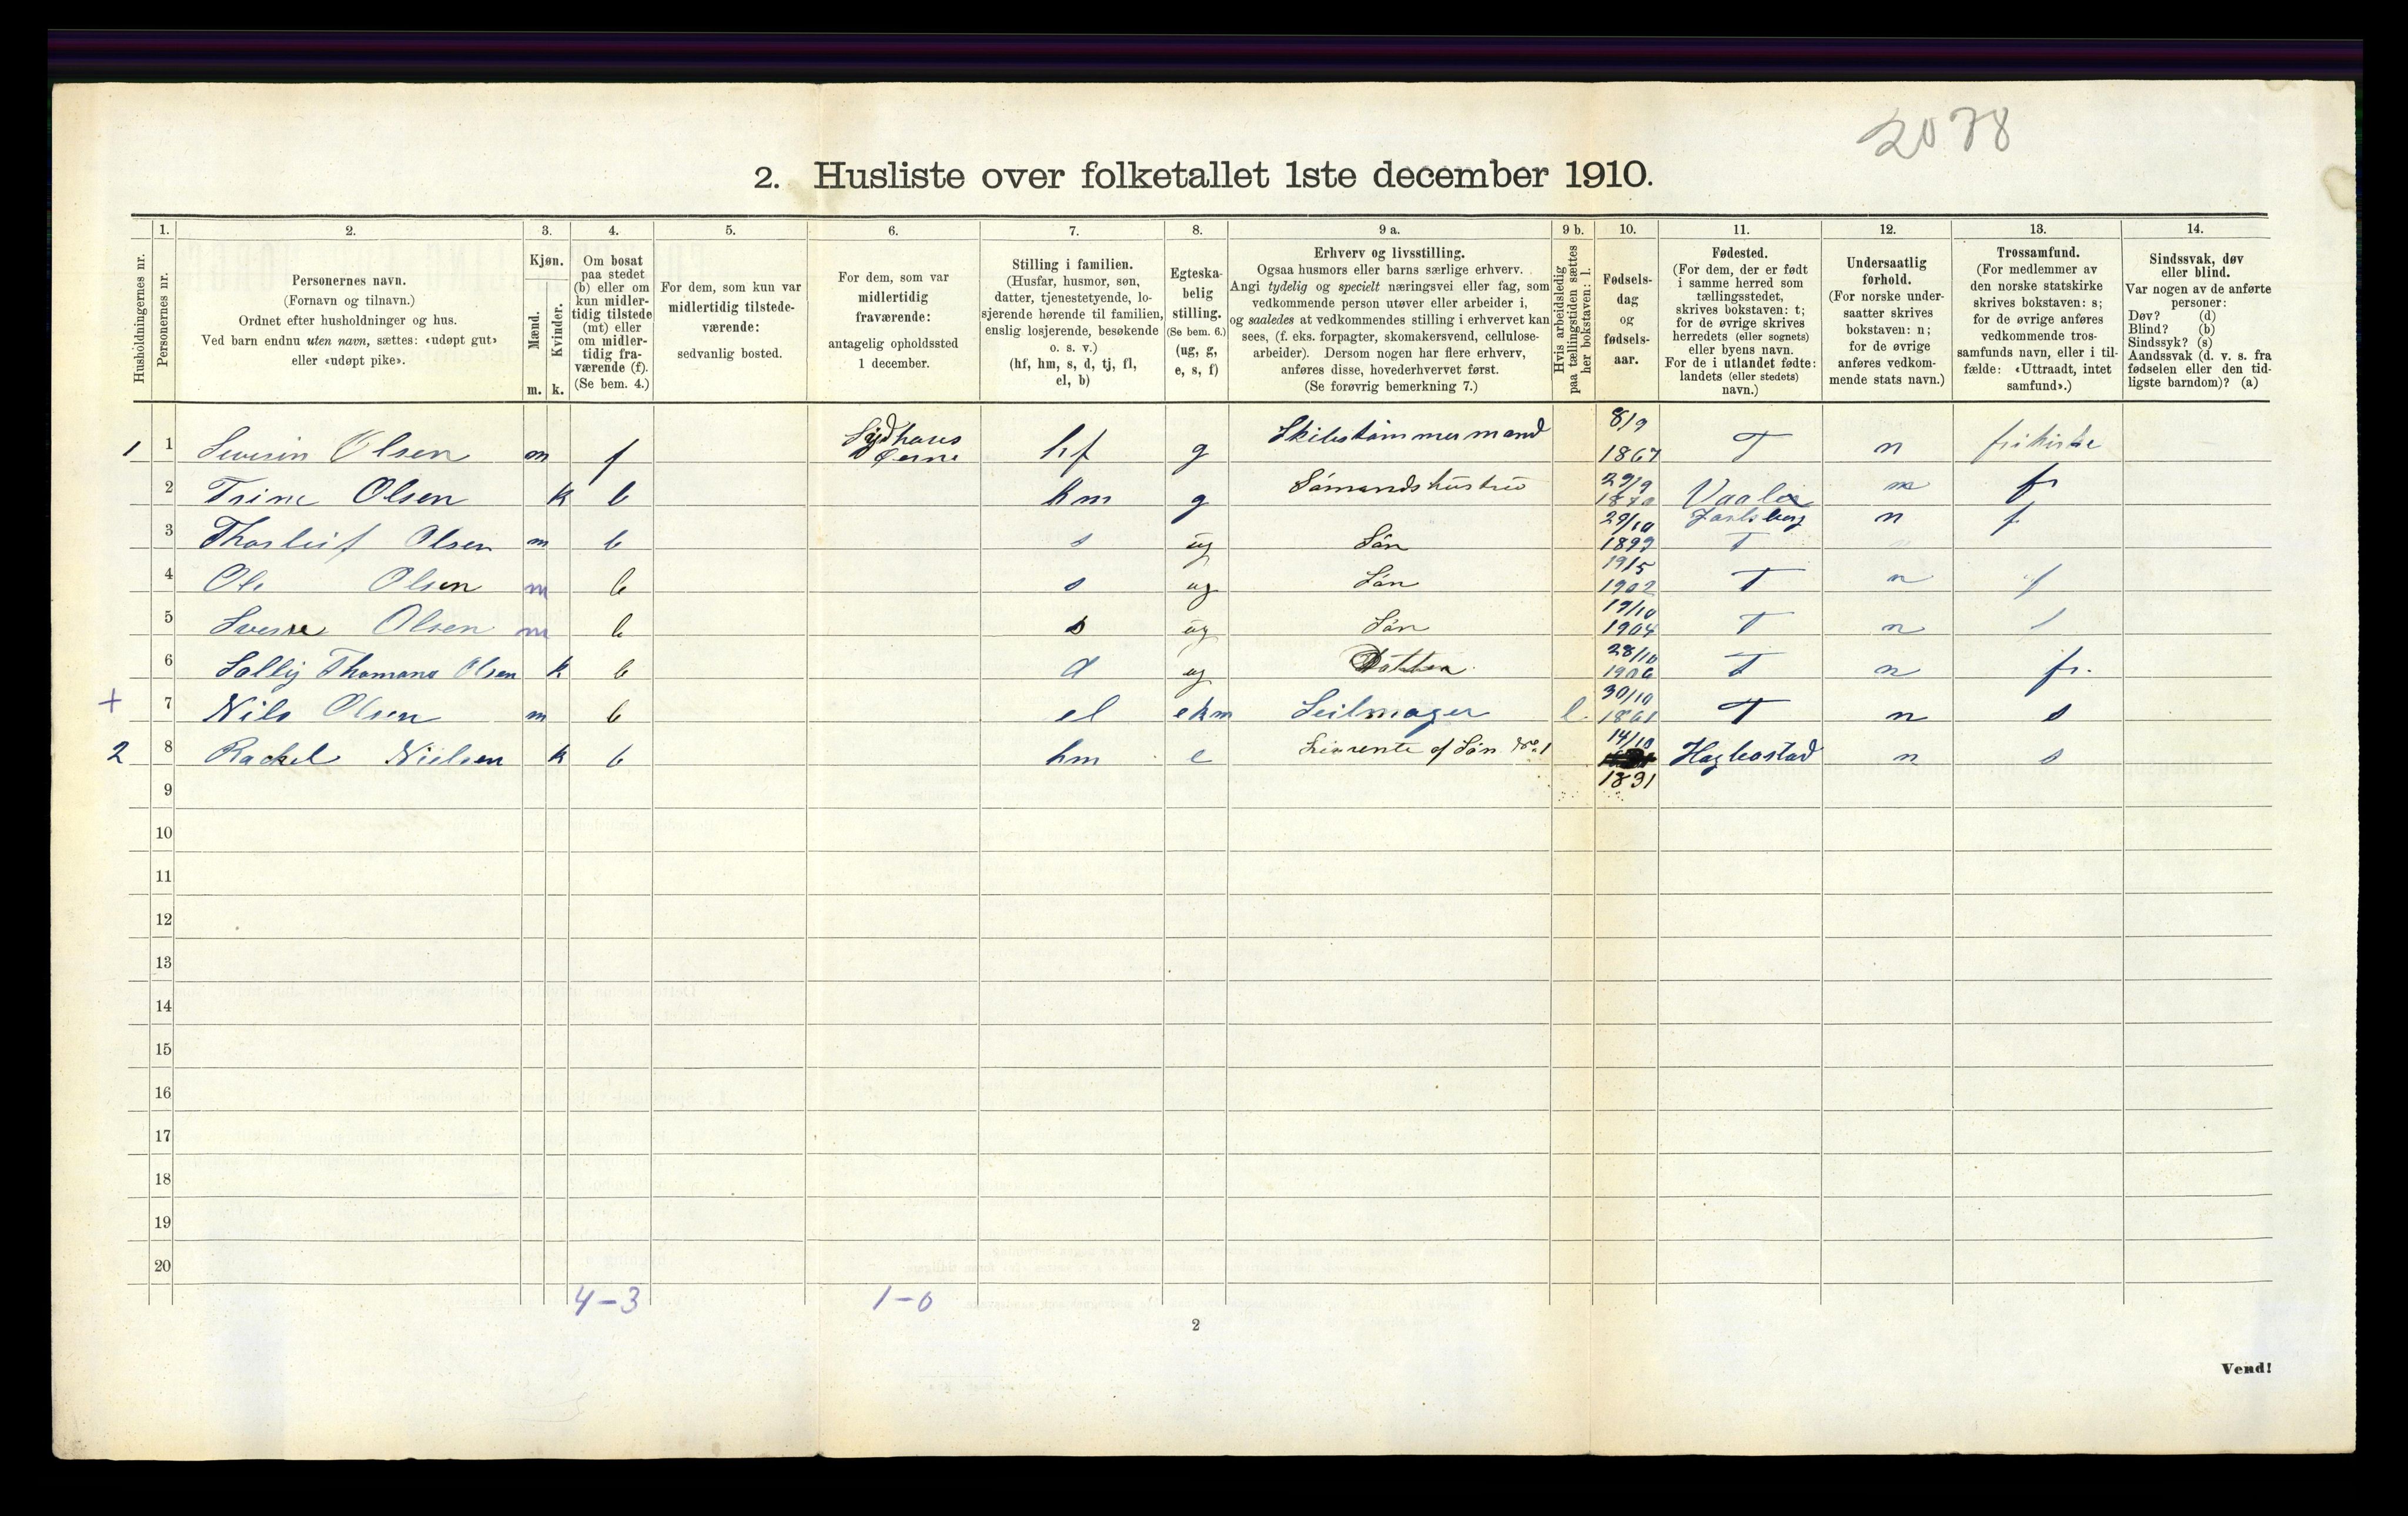 2078
2. Husliste over folketallet 1ste december 1910.
Husholdningernes nr.
1.
Personernes nr.
2.
Personernes navn.
(Fornavn og tilnavn.)
Ordnet efter husholdninger og hus.
Ved barn endnu uten navn, sættes: «udøpt gut»
eller «udøpt pike».
3.
Kjøn.
Mænd.
Kvinder.
m. k.
4.
Om bosat
paa stedet
(b) eller om
kun midler-
tidig tilstede
(mt) eller
om midler-
tidig fra-
værende (f).
(Se bem. 4.)
5.
For dem, som kun var
midlertidig tilstede-
værende:
sedvanlig bosted.
6.
For dem, som var
midlertidig
fraværende:
antagelig opholdssted
1 december.
7.
Stilling i familien.
(Husfar, husmor, søn,
datter, tjenestetyende, lo-
sjerende hørende til familien,
enslig losjerende, besøkende
o. s. v.)
(hf, hm, s, d, tj, fl,
el, b)
8.
Egteska-
belig
stilling.
(Se bem. 6.)
(ug, g,
e, s, f)
9 a.
Erhverv og livsstilling.
Ogsaa husmors eller barns særlige erhverv.
Angi tydelig og specielt næringsvei eller fag, som
vedkommende person utøver eller arbeider i,
og saaledes at vedkommendes stilling i erhvervet kan
sees, (f. eks. forpagter, skomakersvend, cellulose-
arbeider). Dersom nogen har flere erhverv,
anføres disse, hovederhvervet først.
(Se forøvrig bemerkning 7.)
9 b.
Hvis arbeidsledig
paa tællingstiden sættes
her bokstaven: l.
10.
Fødsels-
dag
og
fødsels-
aar.
11.
Fødested.
(For dem, der er født
i samme herred som
tællingsstedet,
skrives bokstaven: t;
for de øvrige skrives
herredets (eller sognets)
eller byens navn.
For de i utlandet fødte:
landets (eller stedets)
navn.)
12.
Undersaatlig
forhold.
(For norske under-
saatter skrives
bokstaven: n;
for de øvrige
anføres vedkom-
mende stats navn.)
13.
Trossamfund.
(For medlemmer av
den norske statskirke
skrives bokstaven: s;
for de øvrige anføres
vedkommende tros-
samfunds navn, eller i til-
fælde: «Uttraadt, intet
samfund».)
14.
Sindssvak, døv
eller blind.
Var nogen av de anførte
personer:
Døv? (d)
Blind? (b)
Sindssyk? (s)
Aandssvak (d. v. s. fra
fødselen eller den tid-
ligste barndom)? (a)
1 1 Severin Olsen m f Sydhavs Øerne hf g Skibstømmermand 8/9 1867 T n frikirke
2 Trine Olsen k b hm g Sømandshustru 29/9 Vaale Jarlsberg n fr
3 Thorleif Olsen m b s ug Søn 29/10 1899 T n f
4 Ole Olsen m b s ug Søn 19/5 1902 T n f
5 Sverre Olsen m b s ug Søn 19/10 1904 T n
6 Solly Thomana Olsen k b d ug Datter 28/10 1906 T n fr.
+ 7 Nils Olsen m b el ekm Seilmager l. 30/10 1861 T n s
2 8 Rachel Nielsen k b hm e Livrente af Søn No 1 14/10 1831 Hægbostad n s
9
10
11
12
13
14
15
16
17
18
19
20
4-3 1-0
2
Vend!